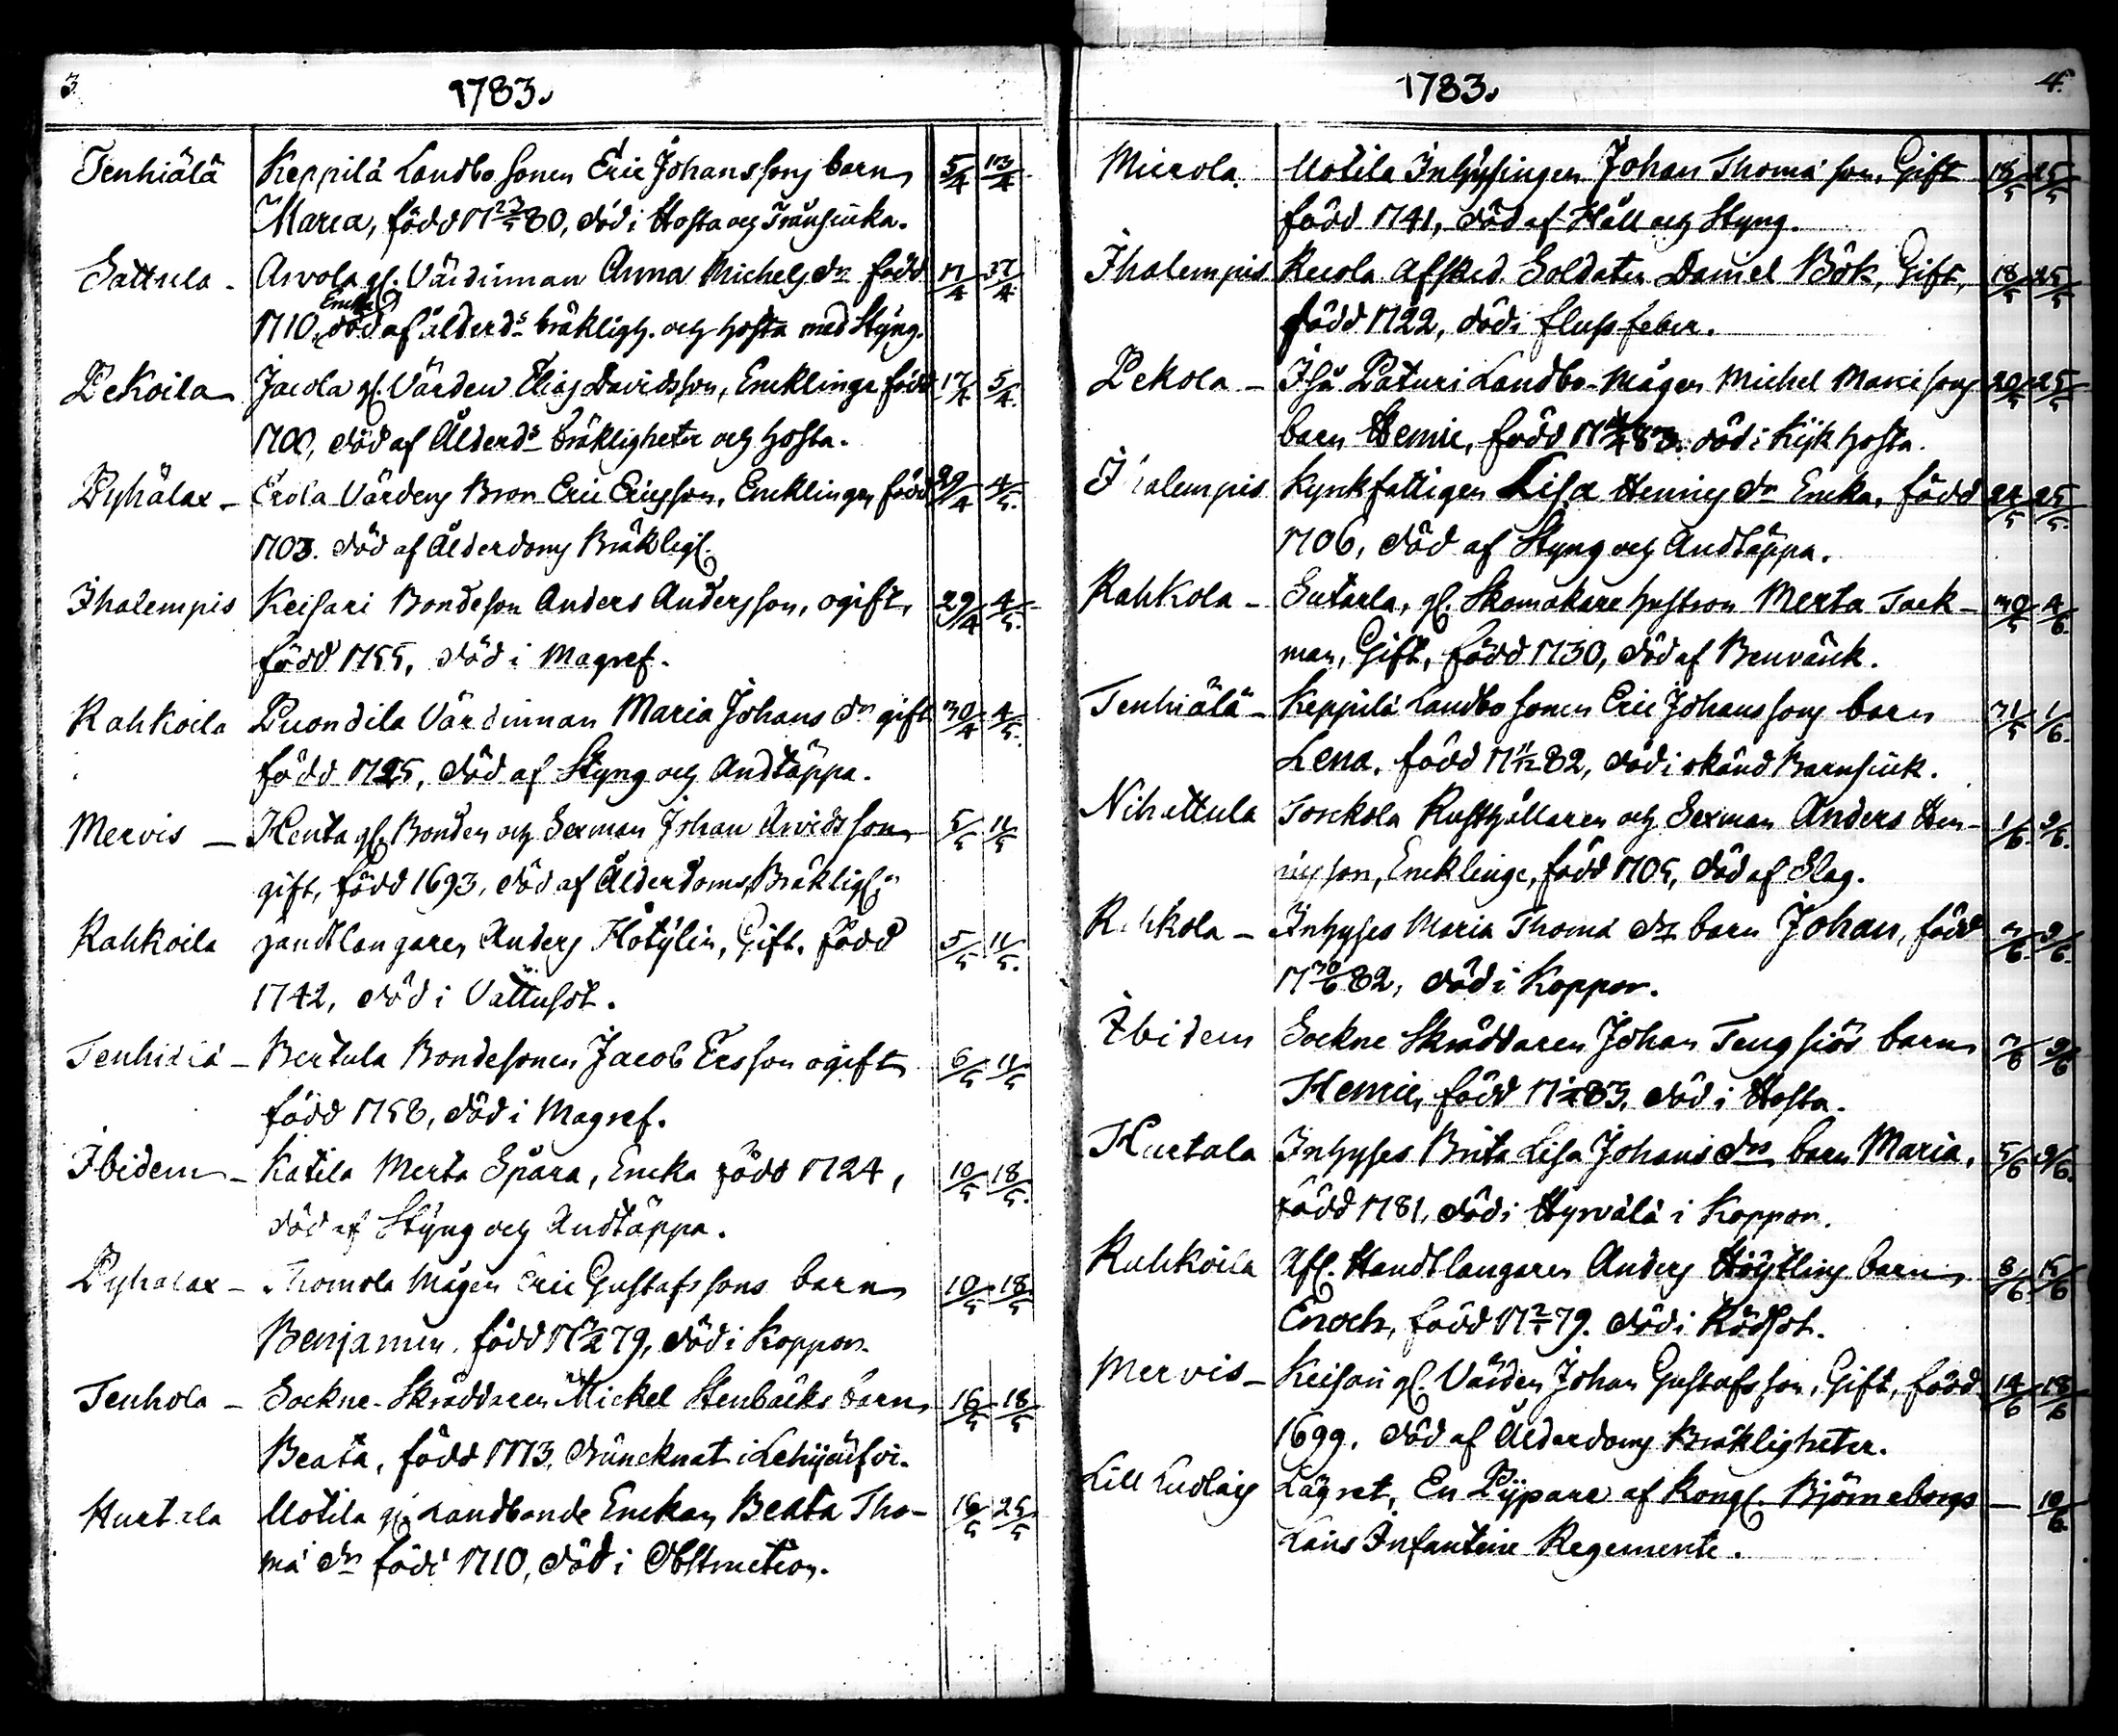 3.
1783.
Tenhiälä Keppilä Landbo Sonen Eric Johanssons barn 5/4 13/4
Maria, född 17 23/5 80, död i Hosta och Trånsiuka.
Sattula - Arvola gl. Värdinnan Anna Michels dr född 17/4 27/4
Encka
1710, död af ålderds bräkligh. och hosta med Styng.
Pekoila Jacola gl. Värden Elias Davidsson, Encklinge född 17/4 5/4
1700, död af Ålderds bräkligheter och hosta.
Pyhälax - Erola Värdens Bror Eric Ericsson, Encklingen, född 29/4 4/5
1703. död af Ålderdoms Bräkligh.
Ihalempis Keisari Bondeson Anders Andersson, ogift, 29/4 4/5
född 1755, död i Magref.
Rahkoila Puondila Värdinnan Maria Johans dr gift 30/4 4/5
född 1725, död af Styng och Andtäppa.
Mervis - Kenta gl. Bonden och Sexman Johan Arvidsson 5/5 11/5
gift, född 1693, död af Ålderdoms Bräkligh.
Rahkoila Handtlangaren Anders Hötylin, Gift. född 5/5 11/5
1742, död i Vattusot.
Tenhiälä - Bertula Bondesonen Jacob Ersson ogift 6/5 11/5
född 1758, död i Magref.
Ibidem - Katila Merta Spara, Encka född 1724, 10/5 18/5
död af Styng och Andtäppa.
Pyhälax - Thomola Mågen Eric Gustafssons barn 10/5 18/5
Benjamin, född 79, död i Koppor.
Tenhola - Sockne-Skräddaren Mickel Stenbäcks barn 16/5 18/5
Beata, född 1773, druncknat i Lehijärfvi.
Hurtala Uotila gl. Landbonde Enckan Beata Tho- 16/5 25/5
mä dr född 1710, död i Obstruction.
1783.
4.
Mierola. Uotila Inhysingen Johan Thomä son, Gift 18/5 25/5
född 1741, död af Håll och Styng.
Ihalempis Recola Afsked. Soldaten Daniel Bök, Gift, 18/5 25/5
född 1722, död i flussfeber.
Pekola - Iso Paturi Landbo-Mågen Michel Maricisons 20/5 25/5
barn Henric, född 83. död i Kijkhosta.
Ihalempis Kyrckfattigen Lisa Henrics dr Encka, född 24/5 25/5
1706, död af Styng och Andtäppa.
Rahkola - Sutarla, gl. Skomakare hustron Merta Tack- 30/5 4/6
man, Gift, född 1730, död af Benvärck.
Tenhiälä - Keppilä Landbo Sonen Eric Johanssons barn 31/5 1/6
Lena, född 17 11/12 82, död i okänd Barnsiuk.
Nihattula Torckola Rusthållaren och Sexman Anders Hen- 1/6 9/6
ricsson, Encklinge, född 1705, död af Slag.
Rahkola - Inhyses Maria Thomä drs barn Johan, född 3/6 9/6
17 30/6 82, död i Koppor.
Ibidem Sockne Skräddaren Johan Tengsiös barn 7/6 9/6
Henric, född 83, död i Hosta.
Hurtala Inhyses Brita Lisa Johans drs barn Maria, 5/6 9/6
född 1781, död i Hyrvälä i Koppor.
Rahkoila Afl. Handtlangaren Anders Höytlins barn 8/6 15/6
Enoch, född 17 2/5 79. död i Rödsot.
Mervis - Keisari gl. Värden Johan Gustafsson, Gift, född 14/6 18/6
1699, död af Ålderdoms Bräkligheter.
Lill Ludlais Lägret, En Pijpare af Kongl. Björneborgs - 10/6
Läns Infanterie Regemente.